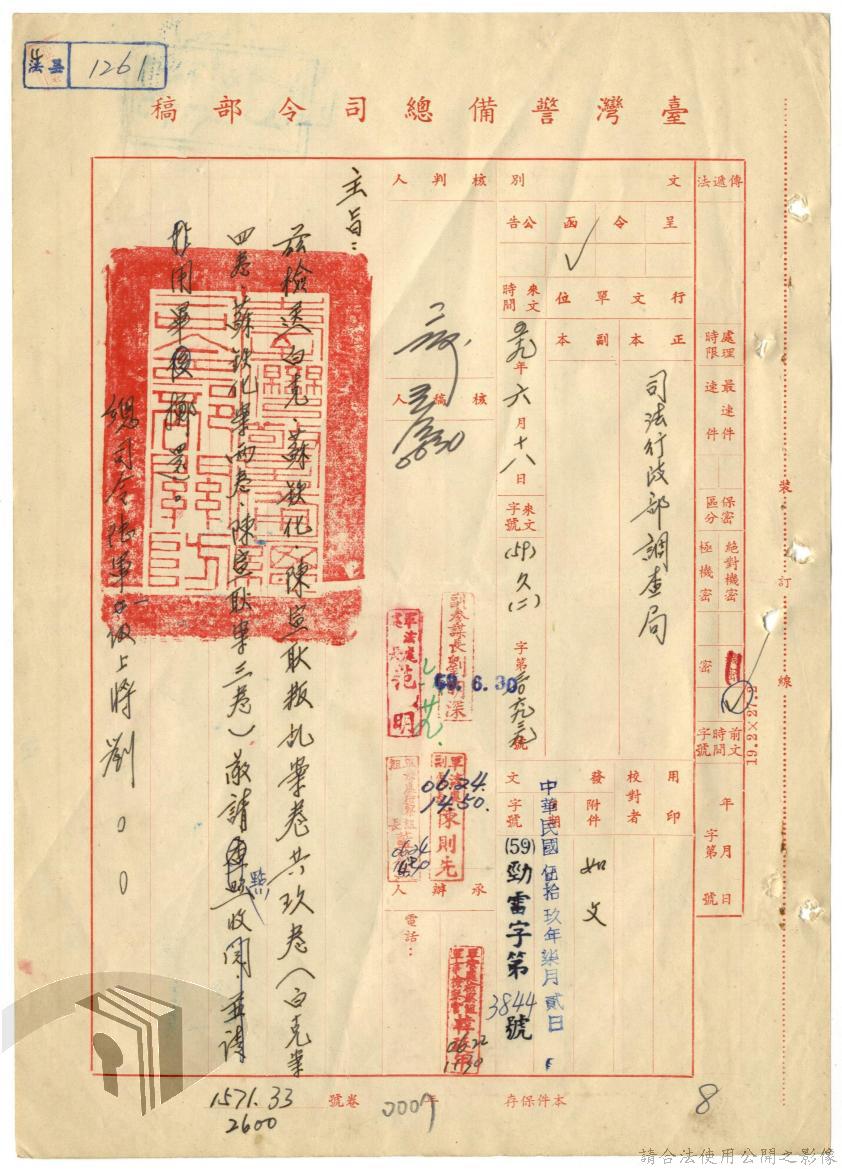 1261
臺灣警備總司令部稿
傳遞法
處理時限
最速件
速件
保密區分
絕對機密
極機密
密
前文時間字號
年
月
日
字第
號
文別
呈
令
函
公告
行文單位
正本
副本
司法行政部調查局
來文時間
年六月十八日
來文字號
(59)
字第
號
用印
校對者
發文
附件
如文
日期
字號
中華民國伍拾玖年柒月貳日
(59)勁需字第3844號
核判人
核稿人
0630
副參謀長
59.6.30
范明
06.24.
14.50.
陳則先
承辦人
電話：
06.22
主旨：
茲檢送白克、蘇欽化、陳宣耿叛亂案卷共玖卷(白克案
四卷、蘇欽化案兩卷、陳宣耿案三卷)敬請點收，並請
於用畢後擲還。
總司令陸軍二級上將劉○○
裝訂線
19.2×27.2
本件保存
年
卷號
0007
1571.33
2600
8
請合法使用公開之影像